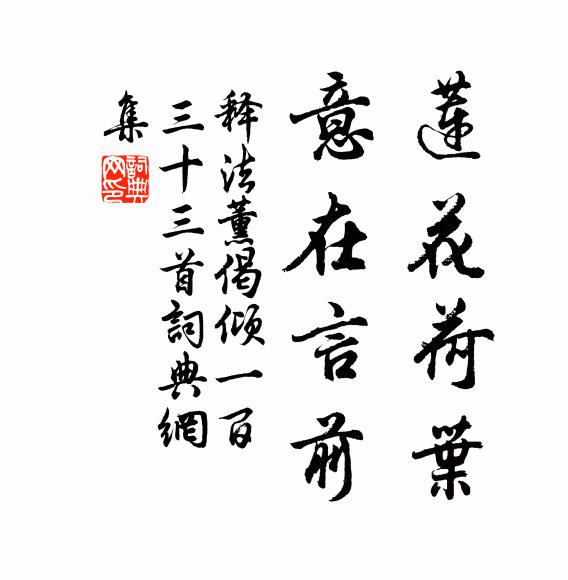 蓮花荷葉
意在言前
释法薰偈傾一百
三十三首詞典網
集
詞典
网印